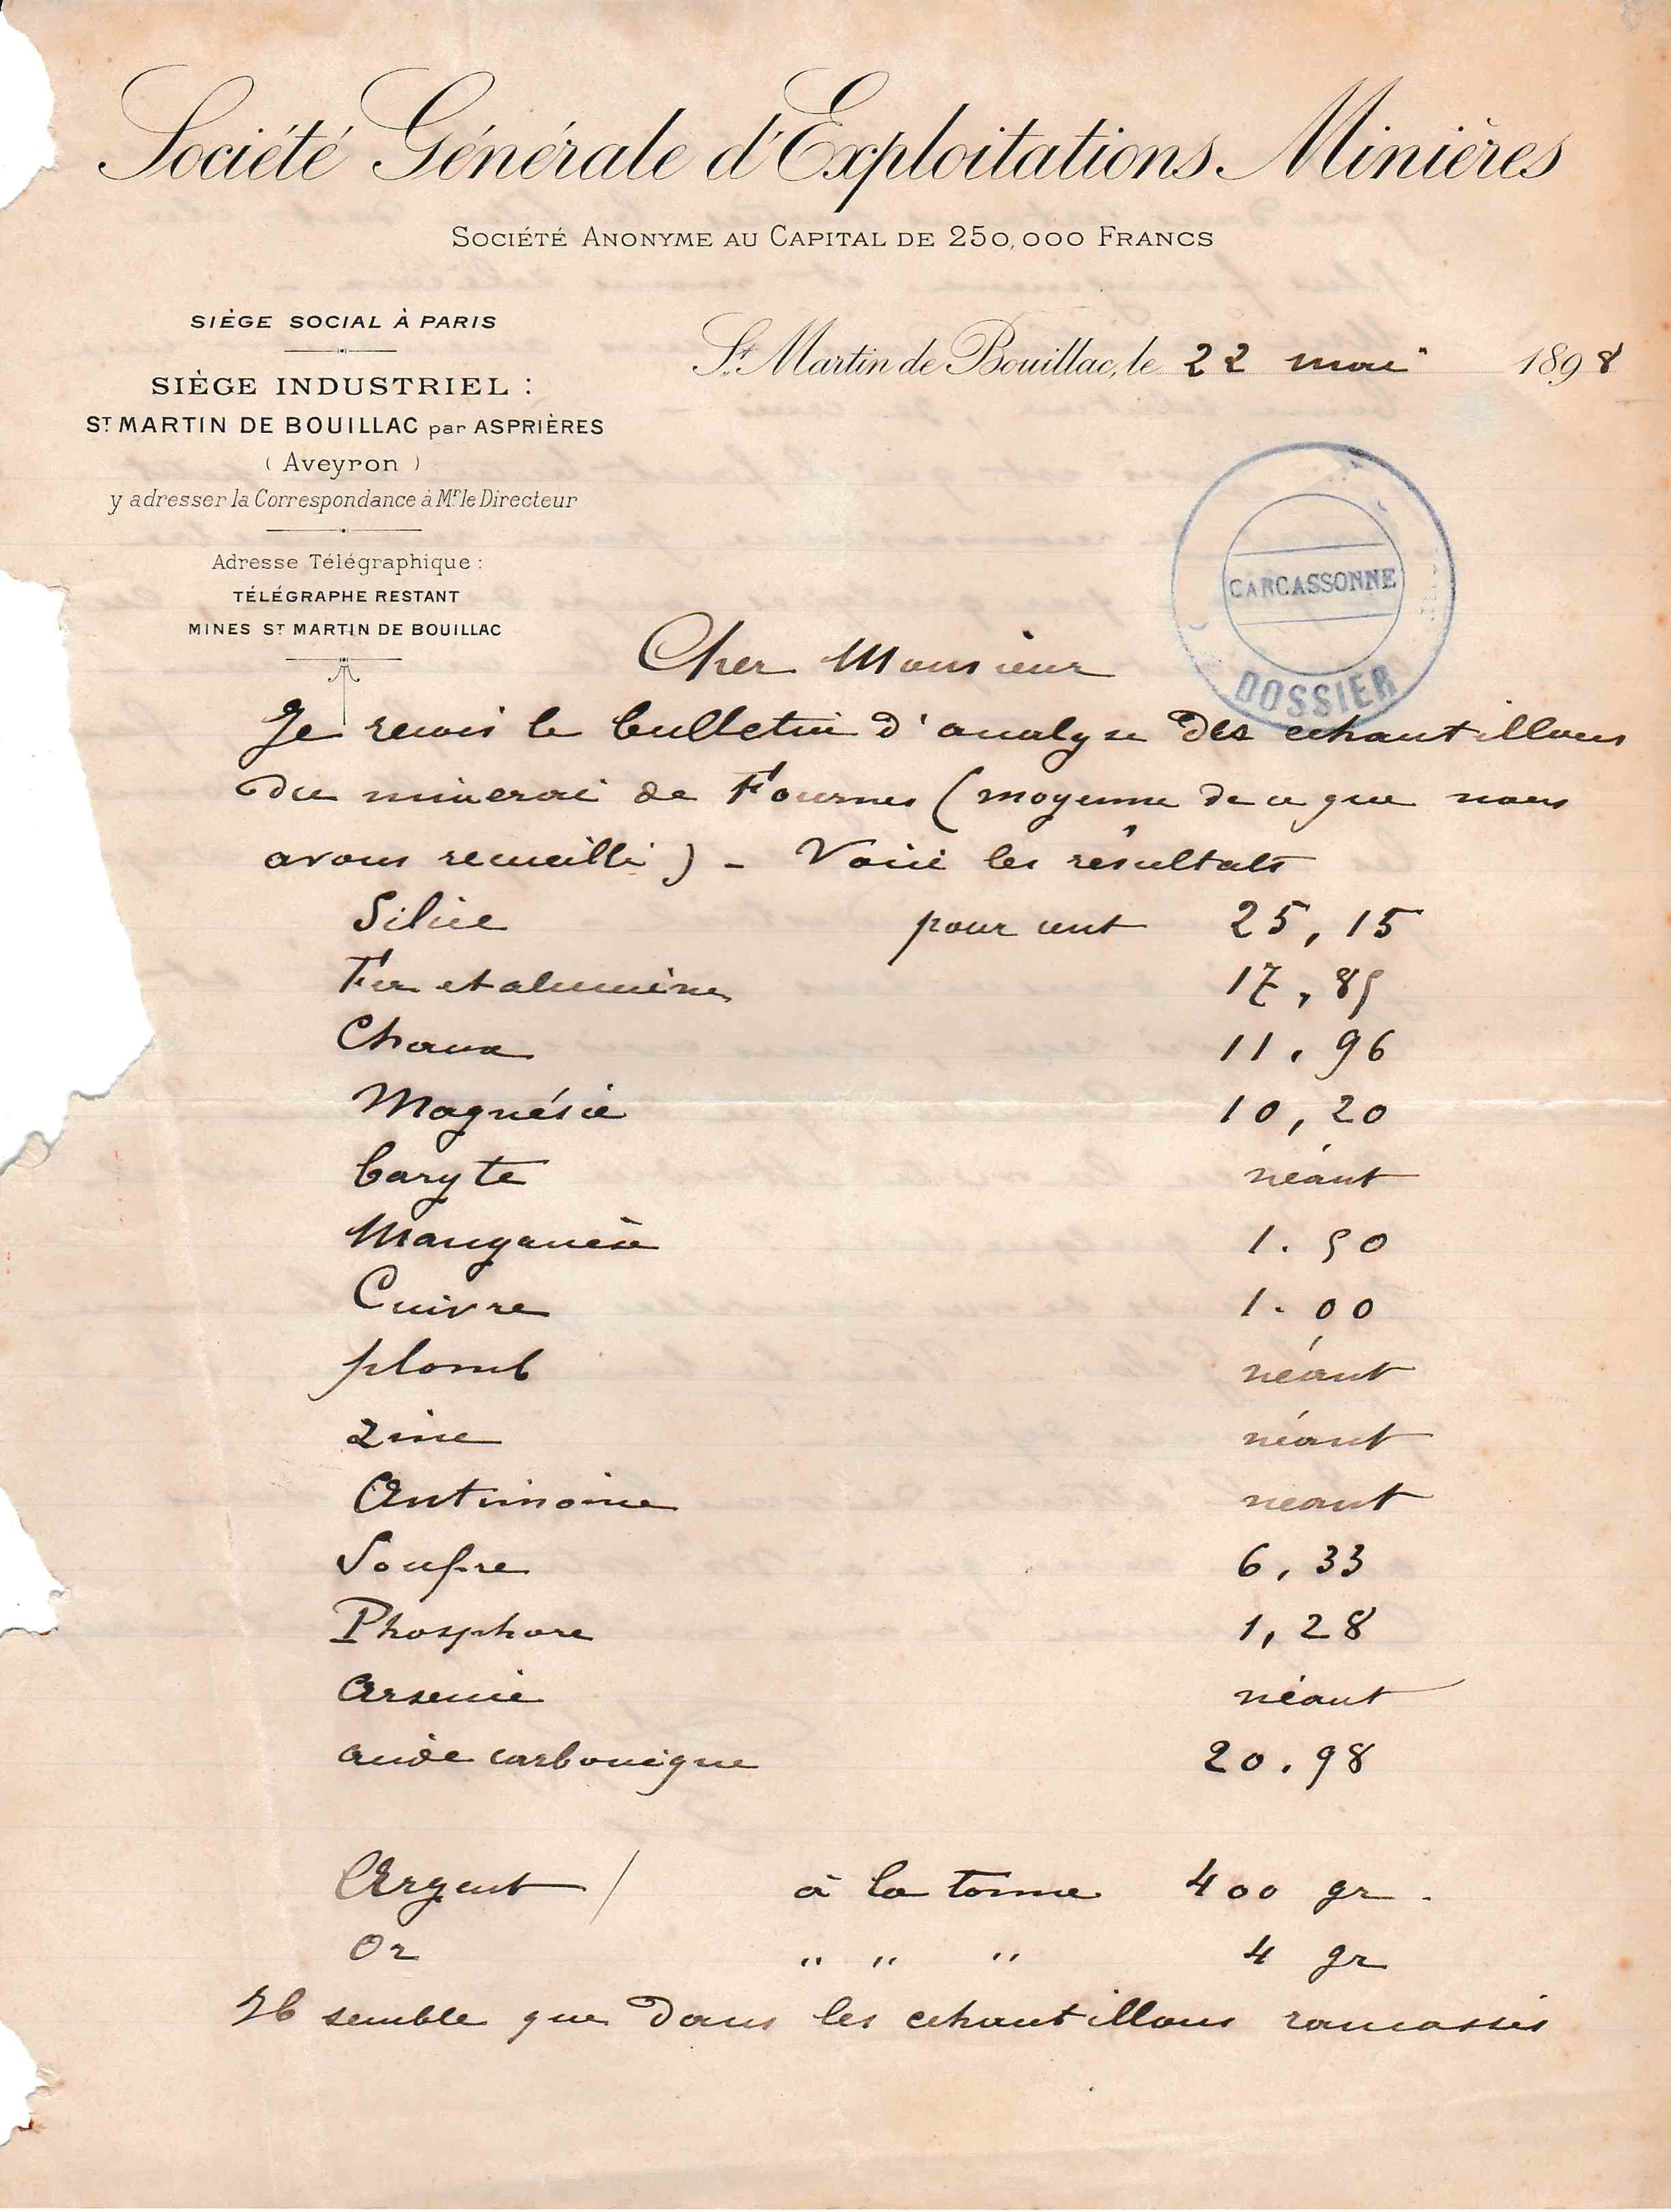 Société Générale d'Exploitations Minières
SOCIÉTÉ ANONYME AU CAPITAL DE 250,000 FRANCS
SIÈGE SOCIAL À PARIS
St. Martin de Bouillac, le 22 mai 1898
SIÈGE INDUSTRIEL :
ST MARTIN DE BOUILLAC par ASPRIÈRES
( Aveyron )
y adresser la Correspondance à Mr. le Directeur
Adresse Télégraphique :
TÉLÉGRAPHE RESTANT
MINES ST MARTIN DE BOUILLAC
CARCASSONNE
DOSSIER
Cher Monsieur
Je recois le bulletin d'analyse des echantillons
du minerai de Fournes (moyenne de ce que nous
avons recueilli) - Voici les résultats
Silice pour cent 25,15
Fer et alumine 17,85
Chaux 11.96
Magnésie 10,20
baryte néant
Manganèse 1.50
Cuivre 1.00
plomb néant
Zinc néant
Antimoine neant
Soufre 6,33
Phosphore 1,28
Arsenic néant
acide carbonique 20.98
Argent / à la tonne 400 gr.
Or " " " 4 gr
Il semble que dans les echantillons ramassés